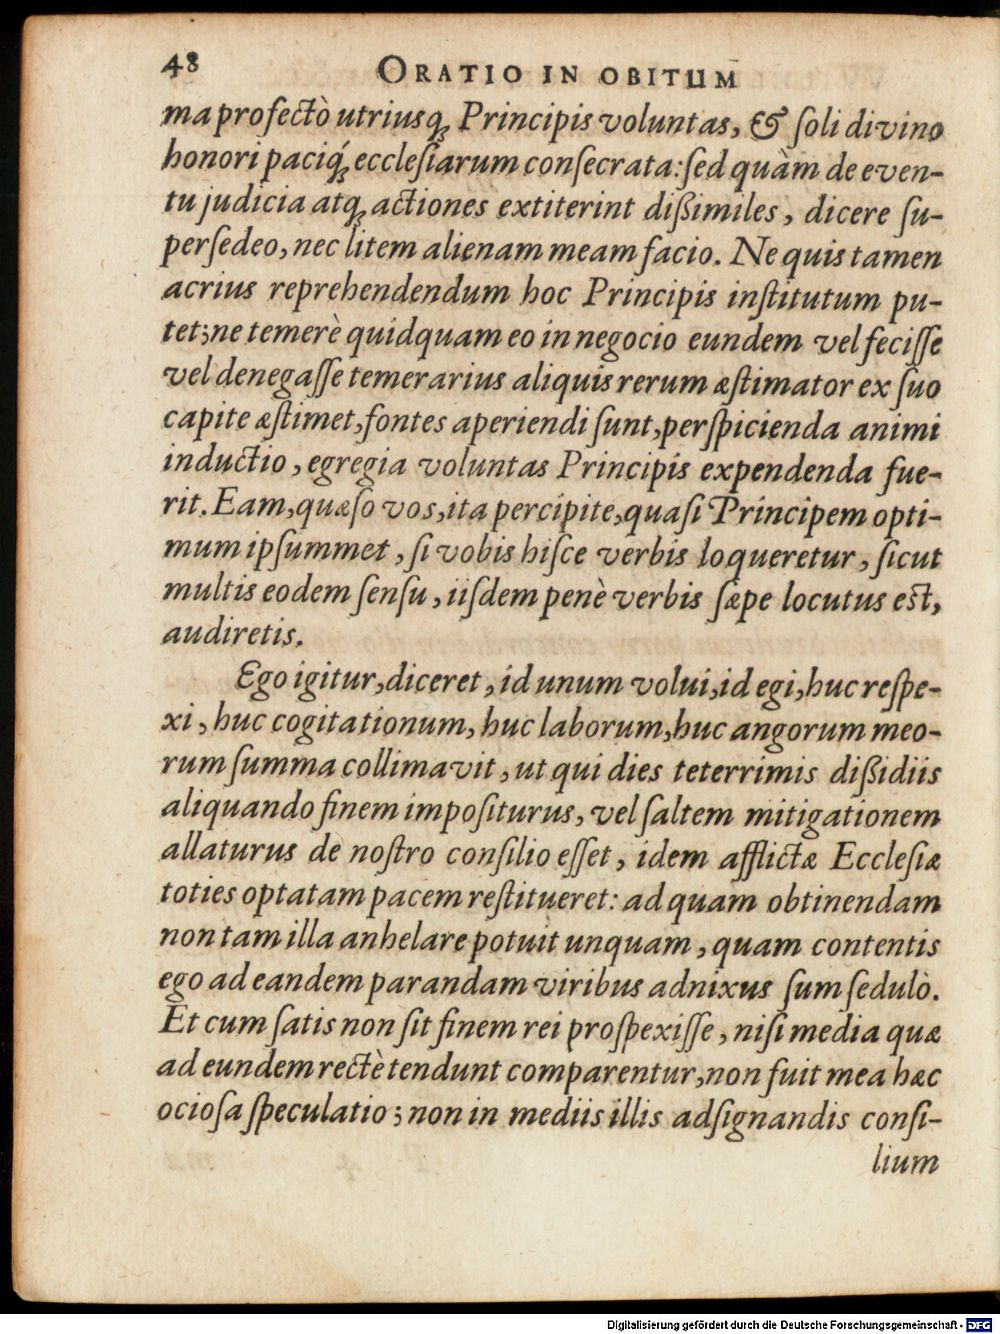 48 ORATIO IN OBITUM
ma profectò utriusq́ꝫ Principis voluntas, & ſoli divino
honori paciq́ꝫ eccleſiarum conſecrata: ſed quàm de even-
tu judicia atqꝫ actiones extiterint dißimiles, dicere ſu-
perſedeo, nec litem alienam meam facio. Ne quis tamen
acrius reprehendendum hoc Principis inſtitutum pu-
tet; ne temerè quidquam eo in negocio eundem vel feciſſe
vel denegaſſe temerarius aliquis rerum æſtimator ex ſuo
capite æſtimet, fontes aperiendi ſunt, perſpicienda animi
inductio, egregia voluntas Principis expendenda fue-
rit. Eam, quæſo vos, ita percipite, quaſi Principem opti-
mum ipſummet, ſi vobis hiſce verbis loqueretur, ſicut
multis eodem ſenſu, iiſdem penè verbis ſæpe locutus eſt,
audiretis.
Ego igitur, diceret, id unum volui, id egi, huc reſpe-
xi, huc cogitationum, huc laborum, huc angorum meo-
rum ſumma collimavit, ut qui dies teterrimis dißidiis
aliquando finem impoſiturus, vel ſaltem mitigationem
allaturus de noſtro conſilio eſſet, idem afflictæ Eccleſiæ
toties optatam pacem reſtitueret: ad quam obtinendam
non tam illa anhelare potuit unquam, quam contentis
ego ad eandem parandam viribus adnixus ſum ſedulò.
Et cum ſatis non ſit finem rei proſpexiſſe, niſi media quæ
ad eundem rectè tendunt comparentur, non fuit mea hæc
ocioſa ſpeculatio; non in mediis illis adſignandis conſi-
lium
Digitalisierung gefördert durch die Deutsche Forschungsgemeinschaft - DFG